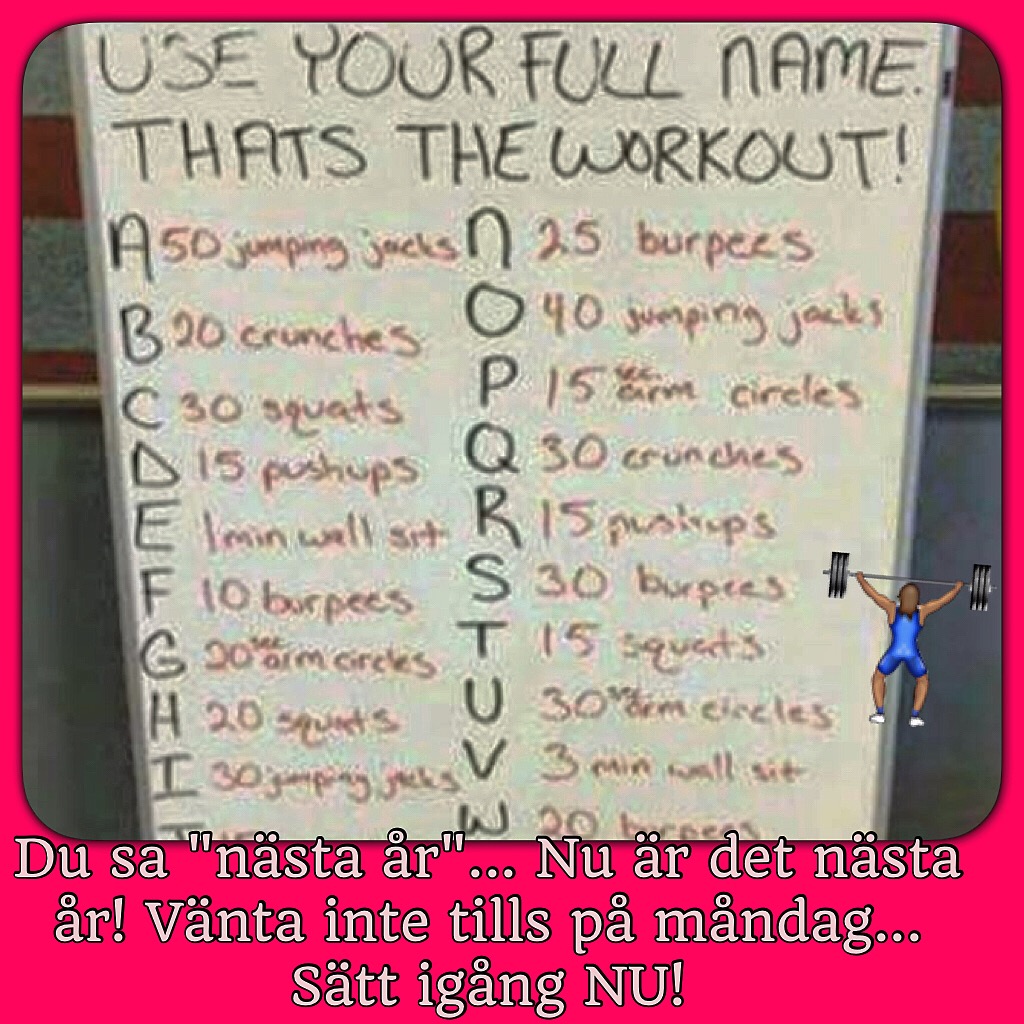 USE YOUR FULL NAME.
THATS THE WORKOUT!
A 50 jumping jacks
B 20 crunches
C 30 squats
D 15 pushups
E 1 min wall sit
F 10 burpees
G 20 sec arm circles
H 20 squats
I 30 jumping jacks
N 25 burpees
O 40 jumping jacks
P 15 sec arm circles
Q 30 crunches
R 15 pushups
S 30 burpees
T 15 squats
U 30 sec arm circles
V 3 min wall sit
W 20 burpees
Du sa "nästa år"... Nu är det nästa
år! Vänta inte tills på måndag...
Sätt igång NU!